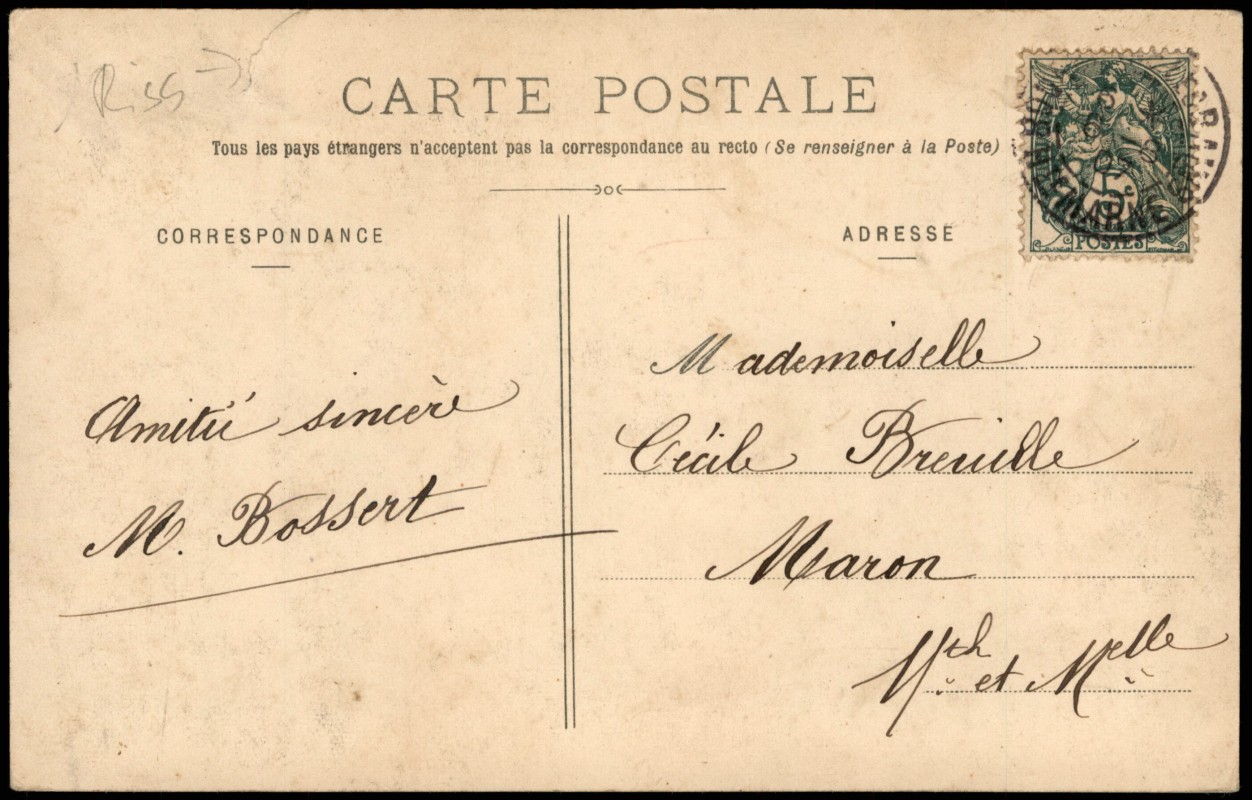 Riss
CARTE POSTALE
Tous les pays étrangers n'acceptent pas la correspondance au recto (Se renseigner à la Poste)
CORRESPONDANCE
ADRESSE
5c
MARNE
POSTES
Amitié sincère
M. Bossert
Mademoiselle
Cécile Breuille
Maron
Mth et Melle